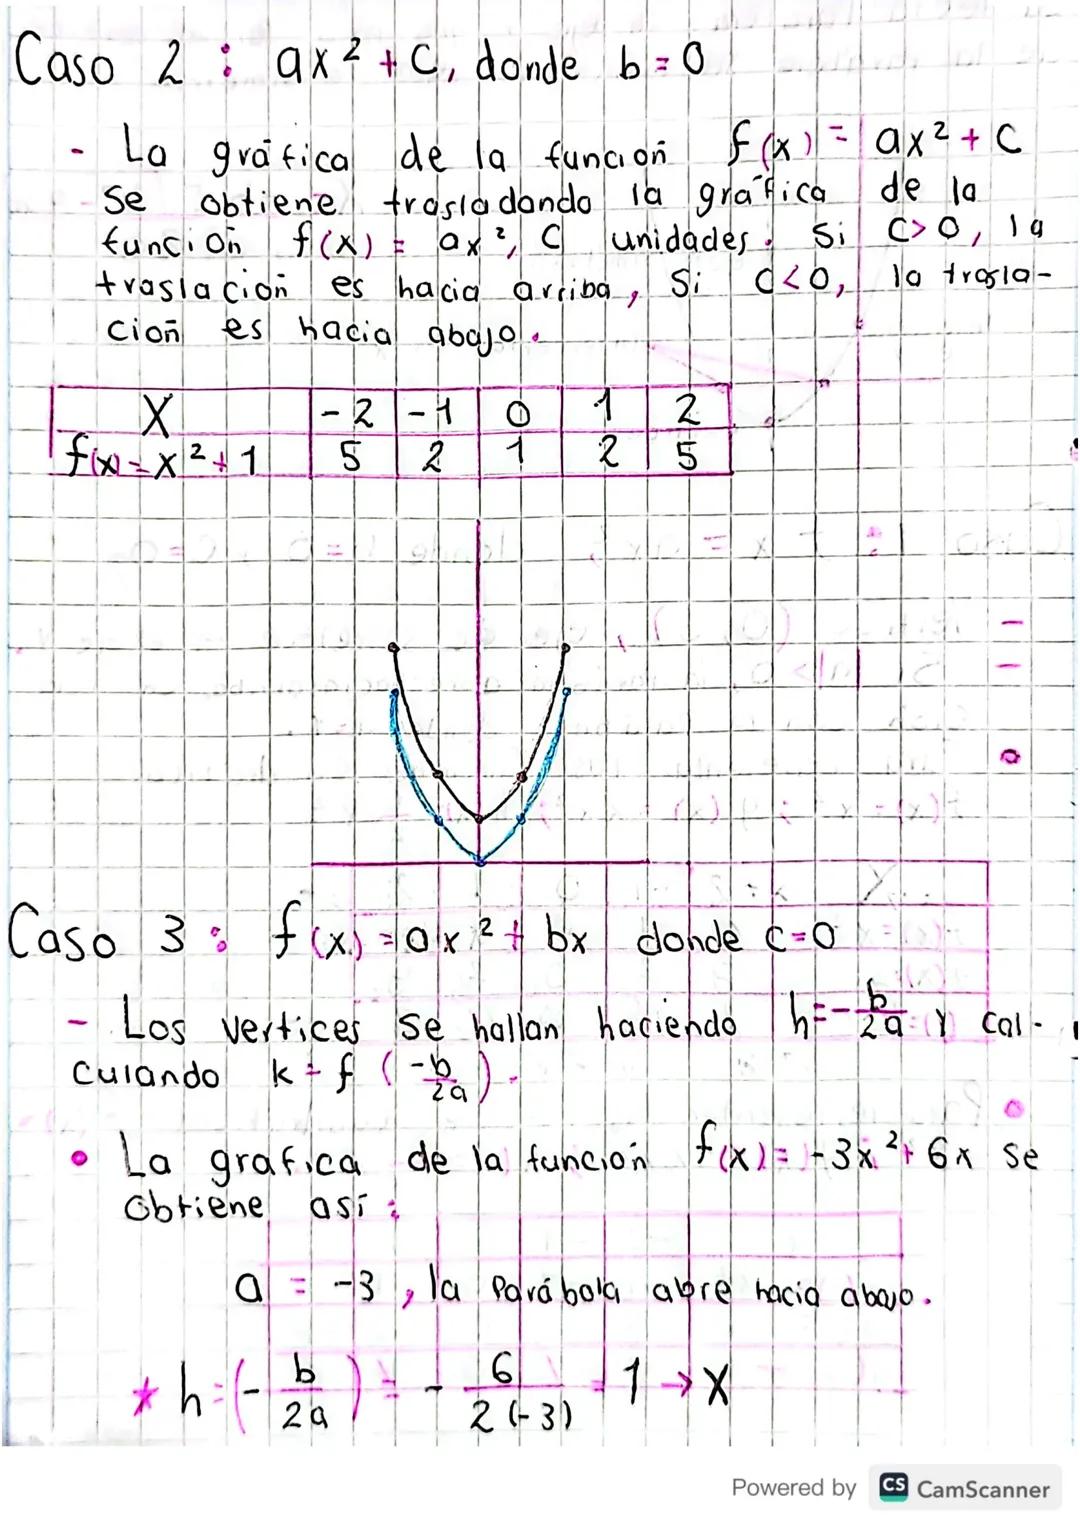 Caso 2: ax² + c, donde b = 0
- La gráfica de la función f(x) = ax² + c
se obtiene trasladando la gráfica de la
función f(x) = ax², c unidades. Si c>0, la
traslación es hacia arriba, Si c<0, la trasla-
ción es hacia abajo.
X -2 -1 0 1 2
f(x) = x² + 1 5 2 1 2 5
Caso 3: f(x) = ax² + bx donde c=0
- Los vertices se hallan haciendo h = -b/2a y cal-
culando k = f (-b/2a).
• La grafica de la función f(x) = -3x² + 6x se
obtiene así:
a = -3, la Parábola abre hacia abajo.
* h = (- b/2a) = - 6/2(-3) = 1 → X
Powered by CS CamScanner